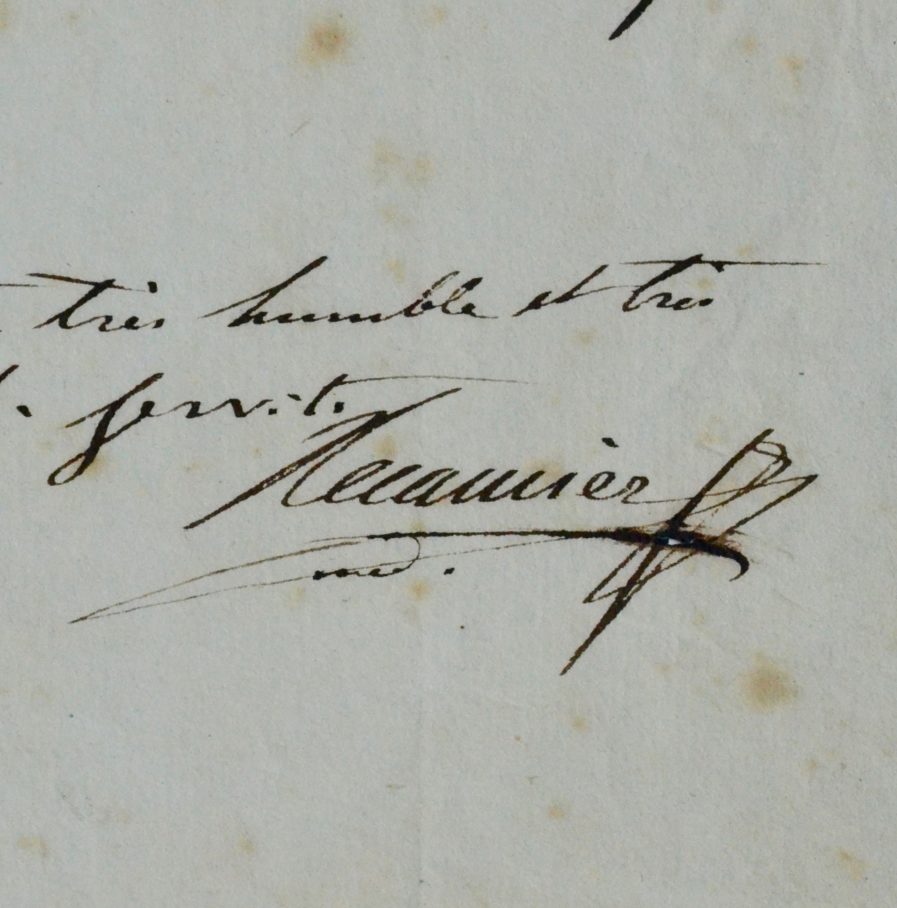 très humble et très
servit.
Récamier
méd.